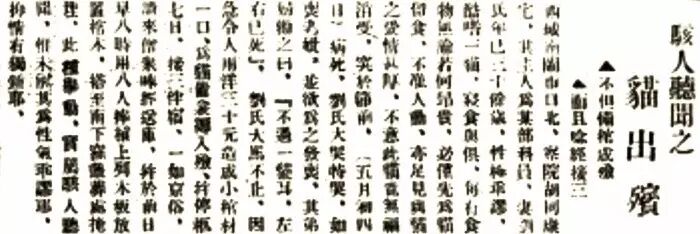 駭人聽聞之
貓出殯
▲不但備棺成殮
▲而且唸經接三
西城南鬧市口北、察院胡同康
宅、其主人為某部科員、妻劉
氏年已三十餘歲、性極乖謬、
酷嗜一貓、寢食與俱、每有食
物無論若何昂貴、必僅先為貓
留食、不准人動、亦足見其貓
之愛情甚厚、不意此貓竟無福
消受、突於節前、（五月初四
日）病死、劉氏大哭特哭、如
喪考妣、並欲為之發喪、其弟
婦勸之曰、『不過一獸耳、左
右已死』、劉氏大罵不止、因
急令人用洋三十元造成小棺材
一口、為貓衾入殮、並停柩
七日、接三伴宿、一如京俗、
請來僧眾唪經超度、並於前日
早八時用八人槓上木板放
置棺木、搭至南下窪葬處掩
埋、此種舉動、實屬駭人聽
聞、惟未其為性氣乖謬耶、
抑情有獨鍾耶、